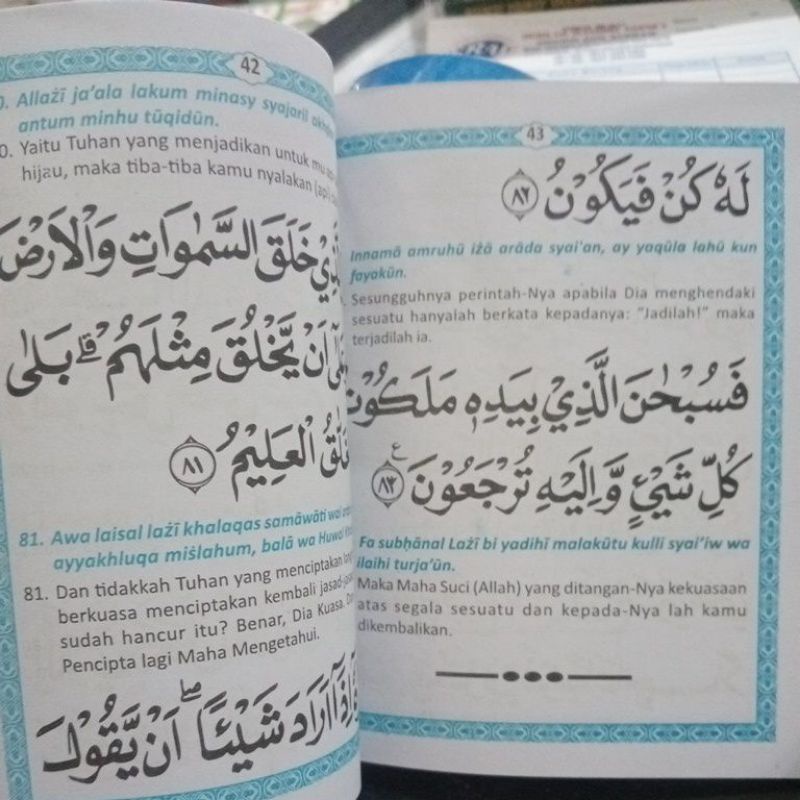 42
Allażī ja'ala lakum minasy syajaril
antum minhu tūqidūn.
Yaitu Tuhan yang menjadikan untuk mu
hijau, maka tiba-tiba kamu nyalakan (api)
خَلَقَ السَّمٰوَاتِ وَالْاَرْضَ
اَنْ يَّخْلُقَ مِثْلَهُمْ ۗ بَلٰى
الْعَلِيْمُ ٨١
81. Awa laisal lażī khalaqas samāwāti wal
ayyakhluqa miślahum, balā wa Huwal
81. Dan tidakkah Tuhan yang menciptakan
berkuasa menciptakan kembali jasad-jasad
sudah hancur itu? Benar, Dia Kuasa.
Pencipta lagi Maha Mengetahui.
اَرَادَ شَيْئًا ۖ اَنْ يَّقُوْلَ
43
لَهٗ كُنْ فَيَكُوْنُ ٨٢
Innamā amruhū iżā arāda syai'an, ay yaqūla lahū kun
fayakūn.
Sesungguhnya perintah-Nya apabila Dia menghendaki
sesuatu hanyalah berkata kepadanya: "Jadilah!" maka
terjadilah ia.
فَسُبْحٰنَ الَّذِيْ بِيَدِهٖ مَلَكُوْتُ
كُلِّ شَيْئٍ وَّاِلَيْهِ تُرْجَعُوْنَ ࣖ ٨٣
Fa subḥānal Lażī bi yadihī malakūtu kulli syai'iw wa
ilaihi turja'ūn.
Maka Maha Suci (Allah) yang ditangan-Nya kekuasaan
atas segala sesuatu dan kepada-Nya lah kamu
dikembalikan.